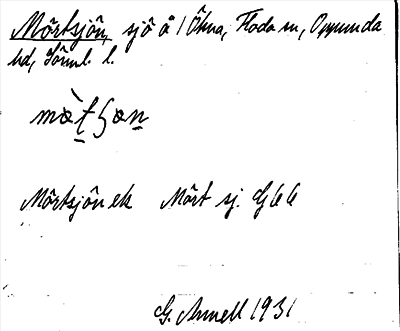 Mörtsjön, sjö å / Ökna, Floda sn, Oppunda
hd, Sörml. l.
Mörtsjön ek Mört sj. G66
G. Annell 1931